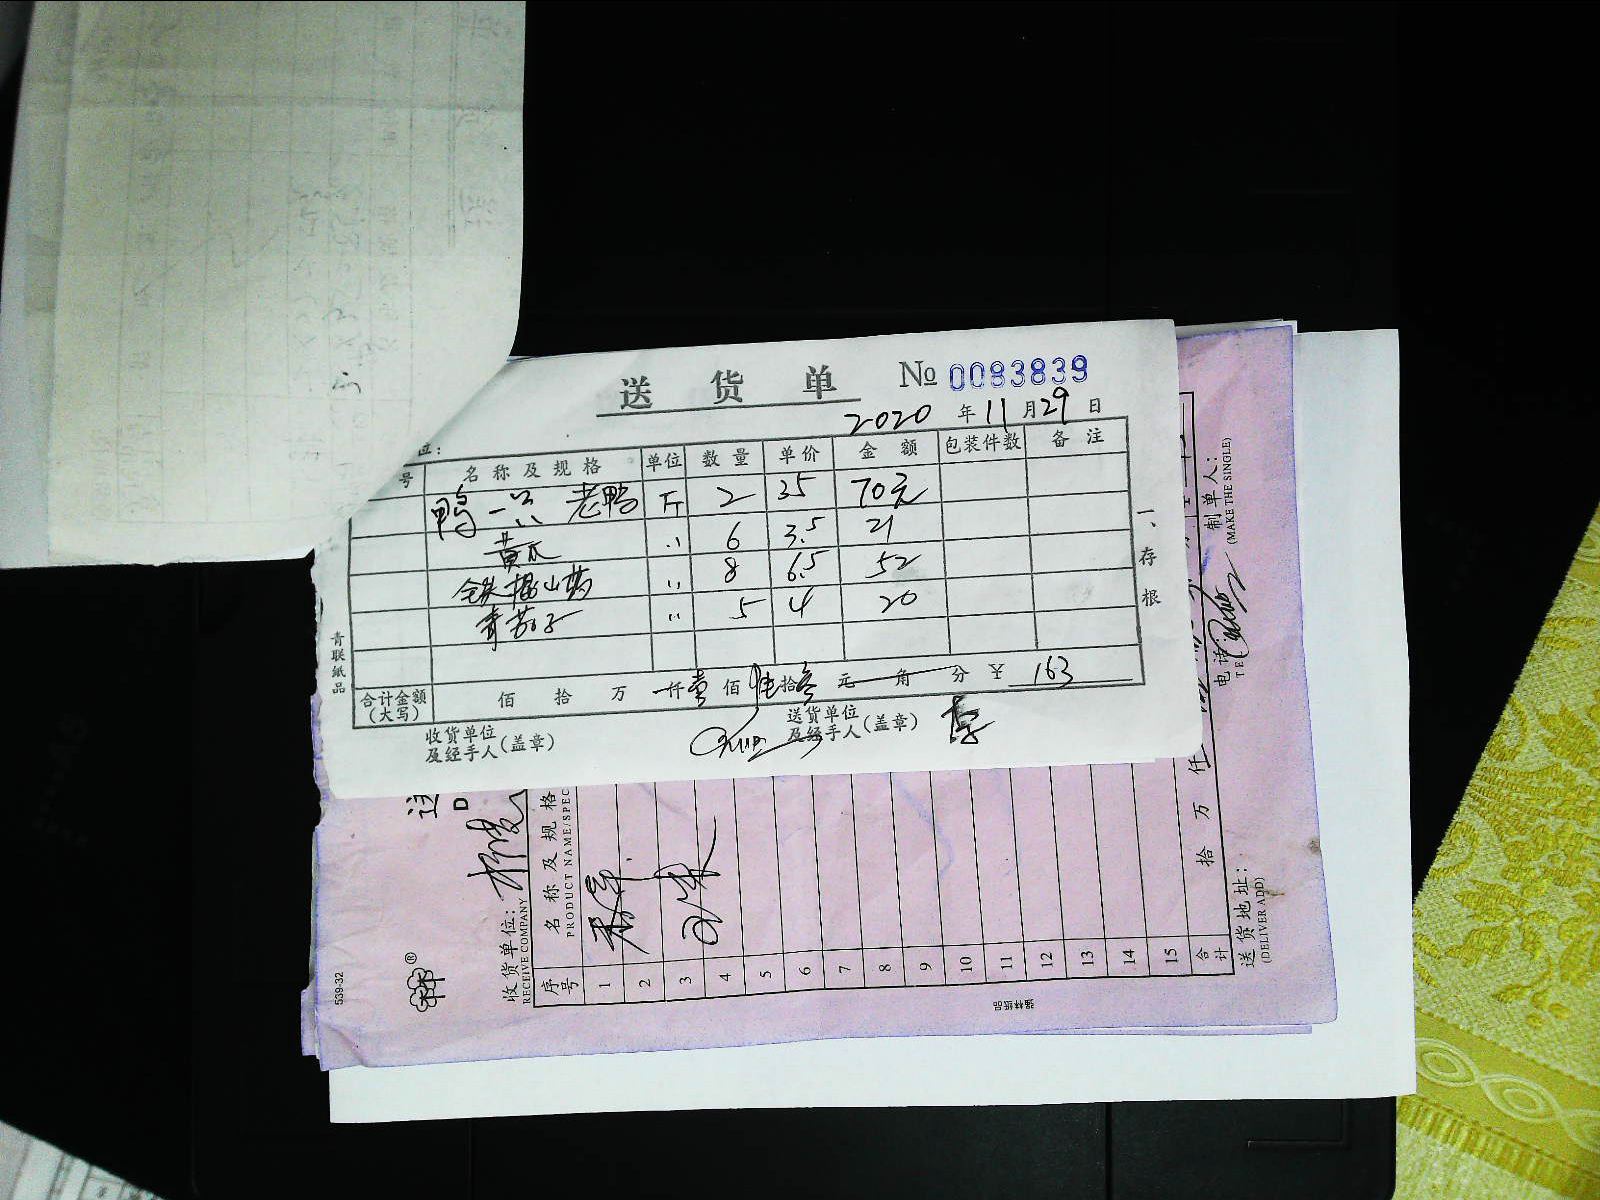 送 货 单 No 0083839
2020 年 11 月 29 日
位：
号 名 称 及 规 格 单位 数 量 单价 金 额 包装件数 备 注
鸭一只 老鸭 斤 2 35 70元
黄瓜 〃 6 3.5 21
铁棍山药 〃 8 6.5 52
青茄子 〃 5 4 20
合计金额（大写） 佰 拾 万 仟 壹 佰 陆 拾 叁 元 角 分 ￥ 163
收货单位及经手人（盖章） 送货单位及经手人（盖章） 李
一、存根
青联纸品
539-32
收货单位：
RECEIVE COMPANY
序号 名 称 及 规 格
PRODUCT NAME/SPEC
1
2
3
4
5
6
7
8
9
10
11
12
13
14
15
合计 拾 万 仟
送货地址：
(DELIVER ADD)
电话：
TE
制单人：
(MAKE THE SINGLE)
强林纸品